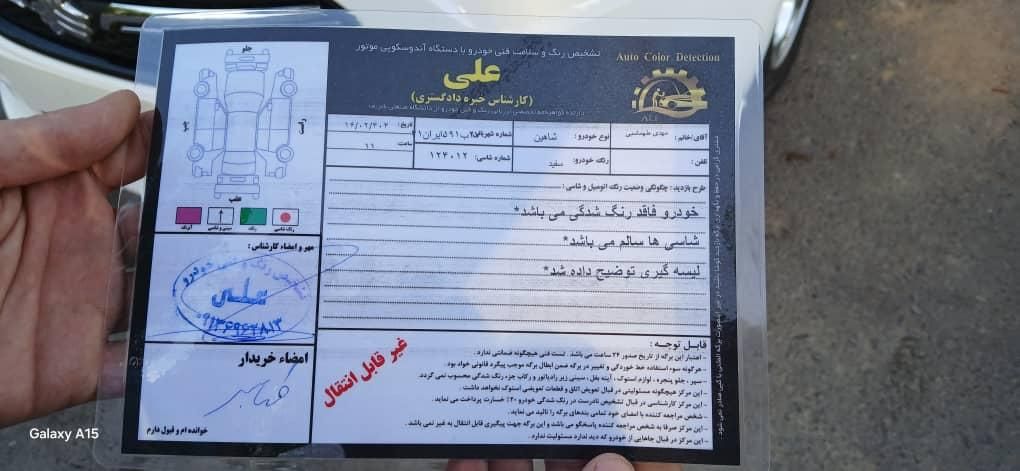 تشخیص رنگ و سلامت فنی خودرو با دستگاه آندوسکوپی موتور
Auto Color Detection
علی
(کارشناس خبره دادگستری)
ALI
آقای/خانم : مهدی طهماسبی
نوع خودرو : شاهین
شماره شهربانی
تاریخ :
تلفن :
رنگ خودرو : سفید
شماره شاسی: ۱۲۴۰۱۲
ساعت ۱۱
طرح بازدید : چگونگی وضعیت رنگ اتومبیل و شاسی :
خودرو فاقد رنگ شدگی می باشد*
شاسی ها سالم می باشد*
لیسه گیری توضیح داده شد*
جلو
چپ
راست
عقب
رنگ شاسی
سینی و شاسی
رنگ
آبرنگ
مهر و امضاء کارشناس :
تشخیص رنگ و فنی خودرو
علی
امضاء خریدار
خوانده ام و قبول دارم
غیر قابل انتقال
قابل توجه :
- اعتبار این برگه از تاریخ صدور ۲۴ ساعت می باشد . تست فنی هیچگونه ضمانتی ندارد .
- هرگونه سوء استفاده خط خوردگی و تغییر در برگه ضمن ابطال برگه موجب پیگرد قانونی خواد بود .
- سپر ، جلو پنجره ، لوازم استوک ، آینه بغل ، سینی زیر رادیاتور و رکاب جزء رنگ شدگی محسوب نمی گردد.
- این مرکز هیچگونه مسئولیتی در قبال تعویض اتاق و قطعات تعویضی استوک نخواهد داشت .
- این مرکز کارشناسی در قبال تشخیص نادرست در رنگ شدگی خودرو ۲۰٪ خسارت پرداخت می نماید .
- شخص مراجعه کننده با امضای خود تمامی بندهای برگه را تائید می نماید .
- این مرکز صرفا به شخص مراجعه کننده پاسخگو می باشد و این برگه جهت پیگیری قابل انتقال به غیر نمی باشد .
- این مرکز در قبال جاهایی از خودرو که دید ندارد مسئولیت ندارد .
Galaxy A15